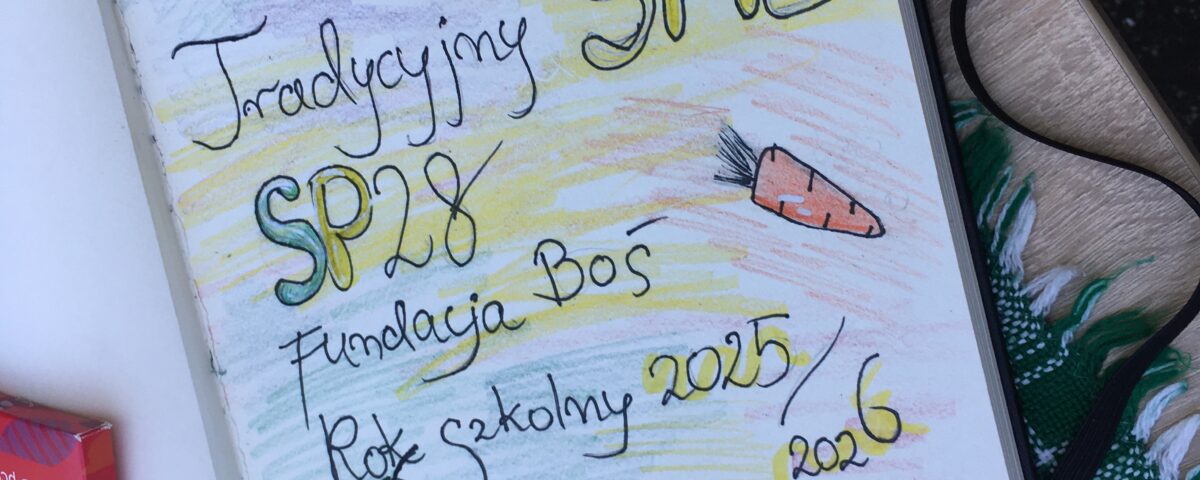 Tradycyjny
SP28
Fundacja Boś
Rok szkolny 2025/
2026